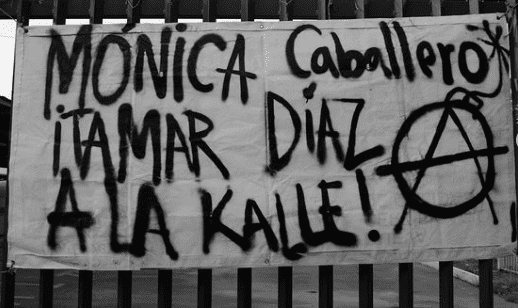 MÓNICA Caballero
ITAMAR DÍAZ
A LA KALLE!